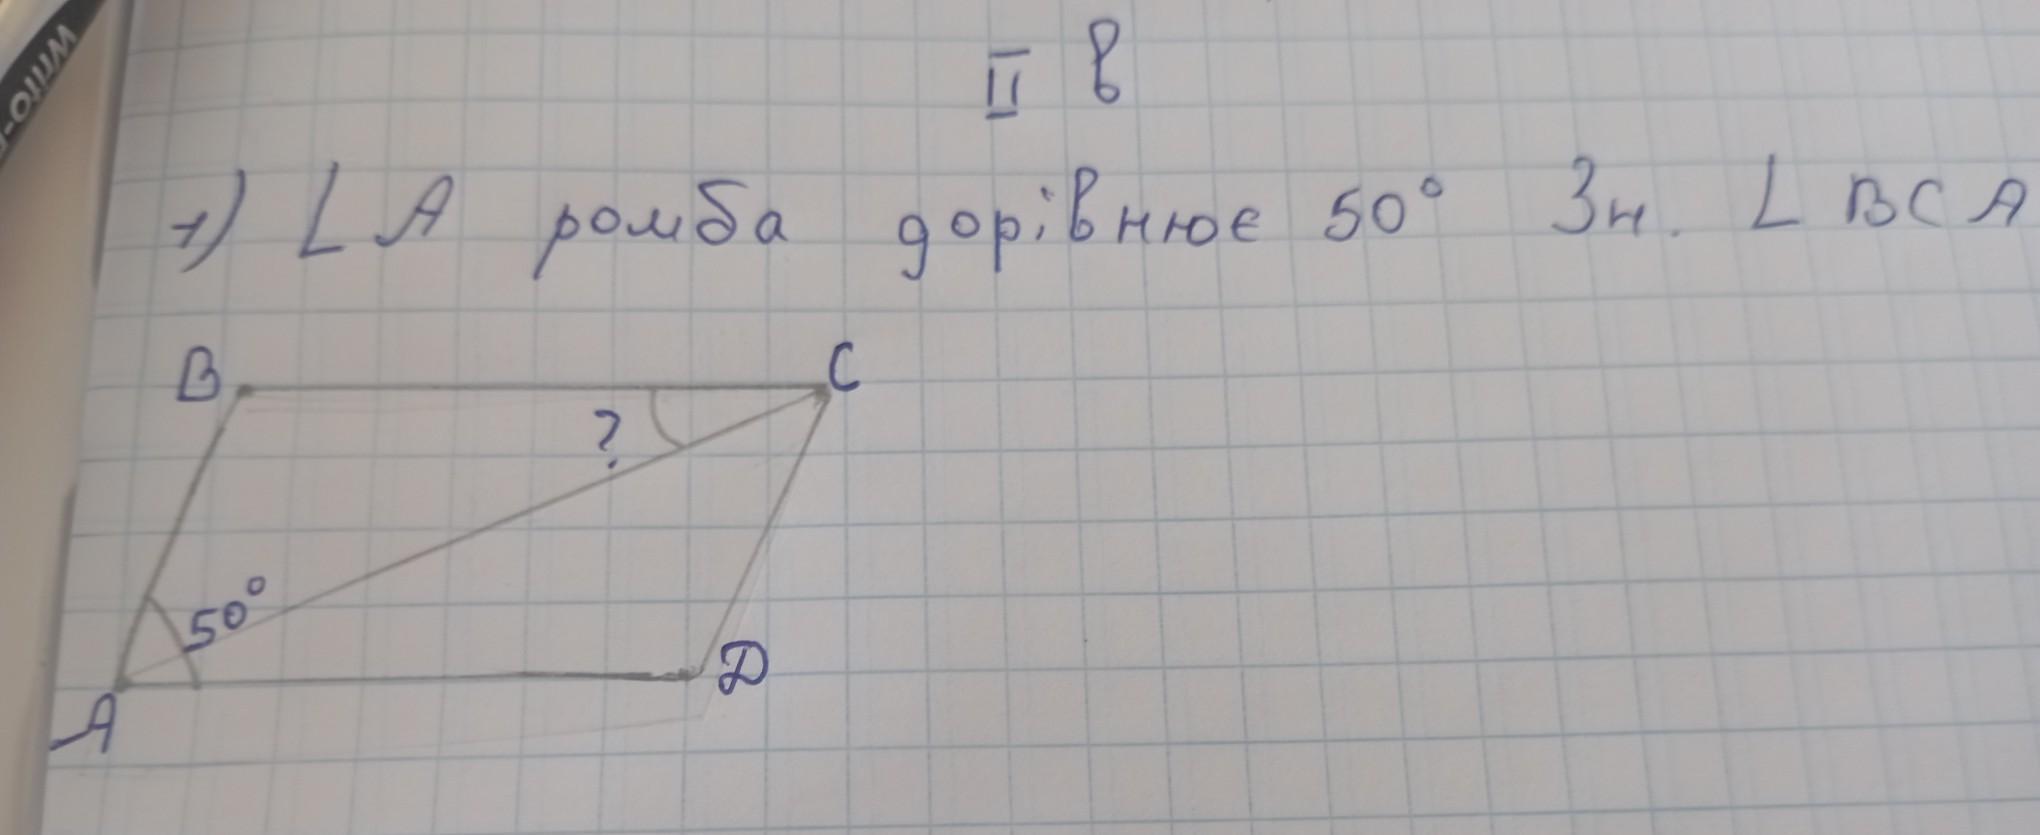 II в
1) ∠A ромба дорівнює 50° Зн. ∠BCA
B
C
?
50°
A
D